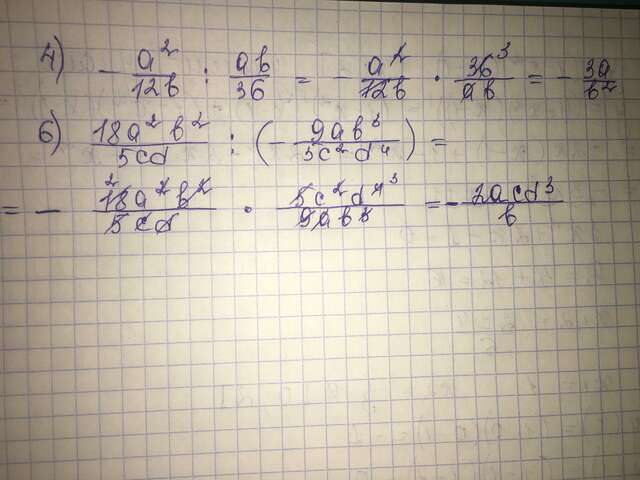 4) - a²/12b : ab/36 = - a²/12b · 36³/ab = - 3a/b²
6) 18a²b²/5cd : (- 9ab³/5c²d⁴) =
= - ²18a²b²/5cd · 5c²d⁴³/9ab³ = - 2acd³/b